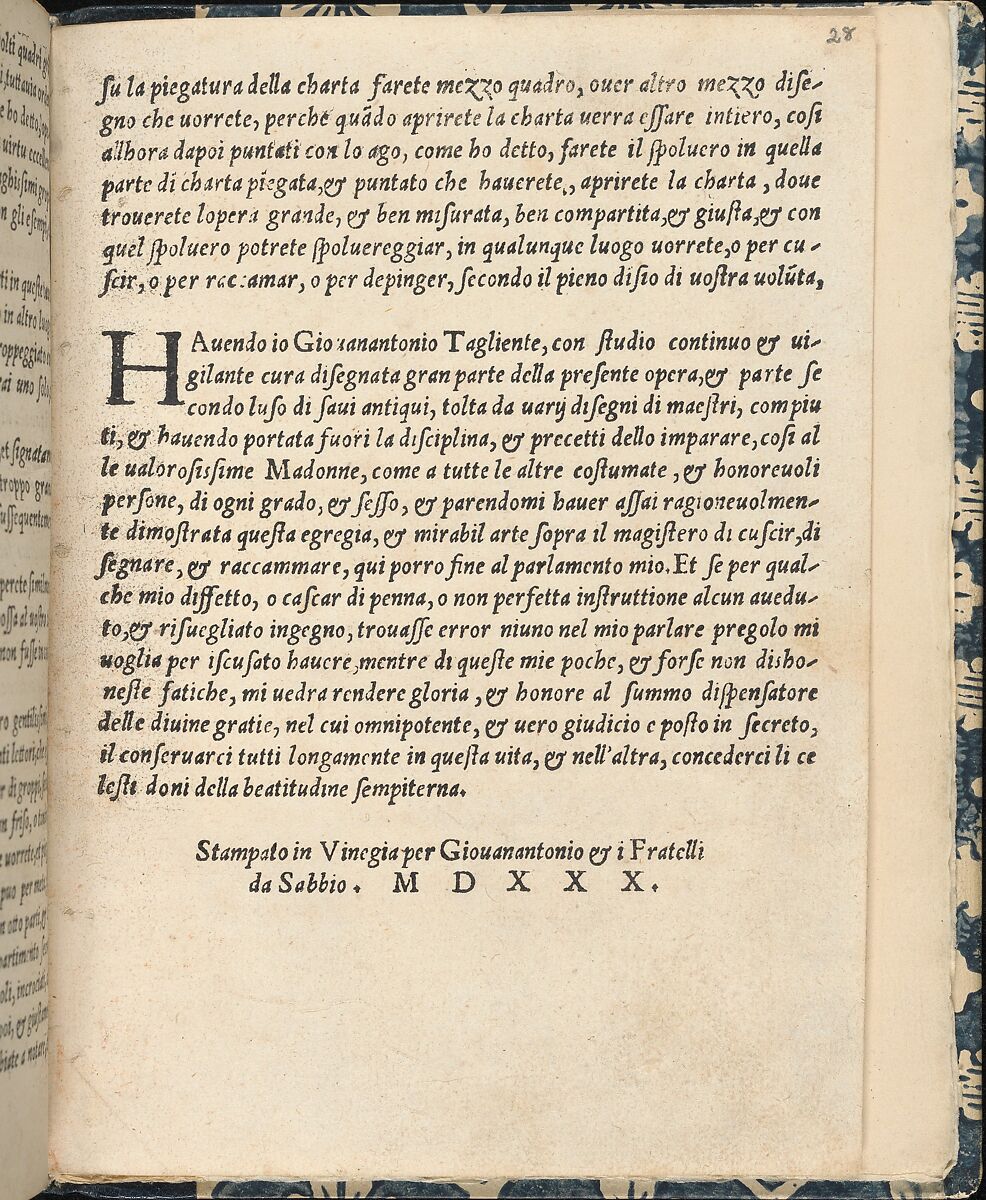 28
su la piegatura della charta farete mezzo quadro, ouer altro mezzo dise-
gno che uorrete, perche quãdo aprirete la charta uerra essare intiero, cosi
allhora dapoi puntati con lo ago, come ho detto, farete il spoluero in quella
parte di charta piegata,& puntato che hauerete,, aprirete la charta , doue
trouerete lopera grande, & ben misurata, ben compartita,& giusta,& con
quel spoluero potrete spoluereggiar, in qualunque luogo uorrete,o per cu-
scir, o per raccamar, o per depinger, secondo il pieno disio di uostra uolũta,
HAuendo io Giouanantonio Tagliente, con studio continuo & ui-
gilante cura disegnata gran parte della presente opera,& parte se
condo luso di saui antiqui, tolta da uarij disegni di maestri, compiu
ti, & hauendo portata fuori la disciplina, & precetti dello imparare, cosi al
le ualorosissime Madonne, come a tutte le altre costumate , & honoreuoli
persone, di ogni grado, & sesso, & parendomi hauer assai ragioneuolmen-
te dimostrata questa egregia, & mirabil arte sopra il magistero di cuscir,di
segnare, & raccammare, qui porro fine al parlamento mio. Et se per qual-
che mio diffetto, o cascar di penna, o non perfetta instruttione alcun auedu-
to,& risuegliato ingegno, trouasse error niuno nel mio parlare pregolo mi
uoglia per iscusato hauere,mentre di queste mie poche, & forse non disho-
neste fatiche, mi uedra rendere gloria , & honore al summo dispensatore
delle diuine gratie, nel cui omnipotente, & uero giudicio e posto in secreto,
il conseruarci tutti longamente in questa uita, & nell'altra, concederci li ce
lesti doni della beatitudine sempiterna.
Stampato in Vinegia per Giouanantonio & i Fratelli
da Sabbio. M D X X X.